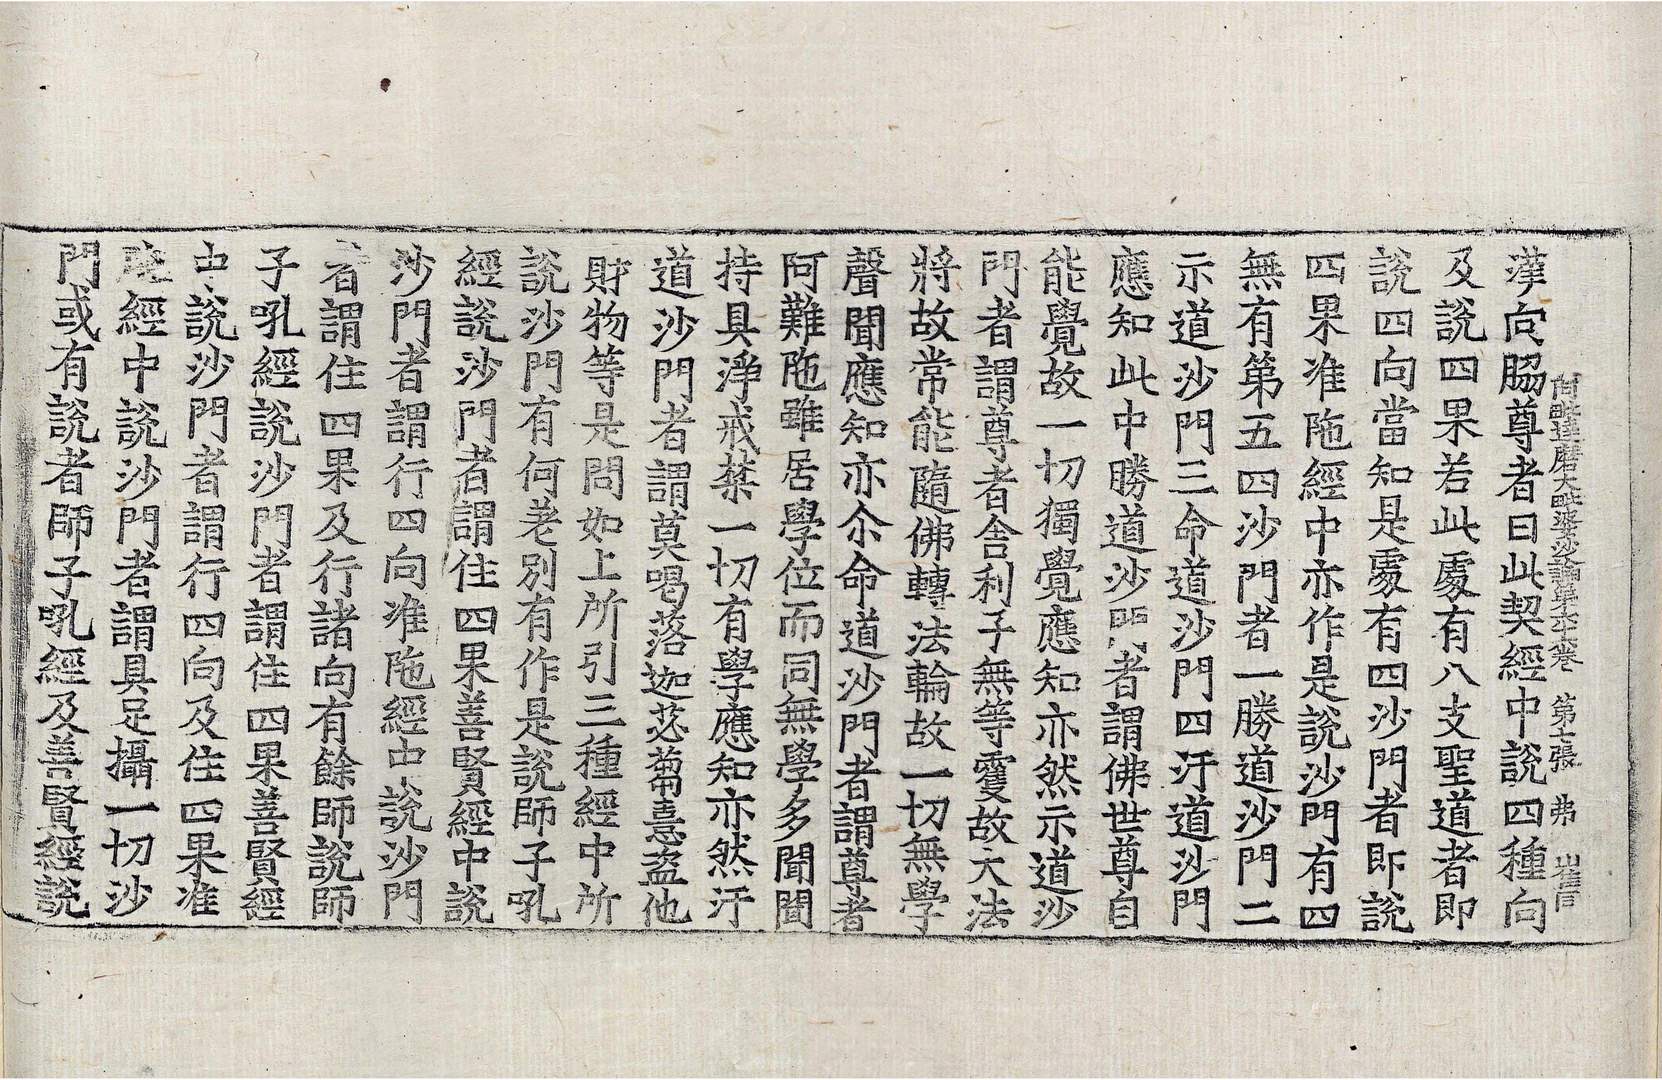 阿毗達磨大毗婆沙論第六十六卷　第十張　弗
漢向脇尊者曰此契經中說四種向
及說四果若此處有八支聖道者即
說四向當知是處有四沙門者即說
四果准陁經中亦作是說沙門有四
無有第五四沙門者一勝道沙門二
示道沙門三命道沙門四汙道沙門
應知此中勝道沙門者謂佛世尊自
能覺故一切獨覺應知亦然示道沙
門者謂尊者舍利子無等雙故大法
將故常能隨佛轉法輪故一切無學
聲聞應知亦尒命道沙門者謂尊者
阿難陁雖居學位而同無學多聞聞
持具淨戒禁一切有學應知亦然汙
道沙門者謂莫喝落迦苾蒭憙盜他
財物等是問如上所引三種經中所
說沙門有何差別有作是說師子吼
經說沙門者謂住四果善賢經中說
沙門者謂行四向准陁經中說沙門
者謂住四果及行諸向有餘師說師
子吼經說沙門者謂住四果善賢經
中說沙門者謂行四向及住四果准
陁經中說沙門者謂具足攝一切沙
門或有說者師子吼經及善賢經說